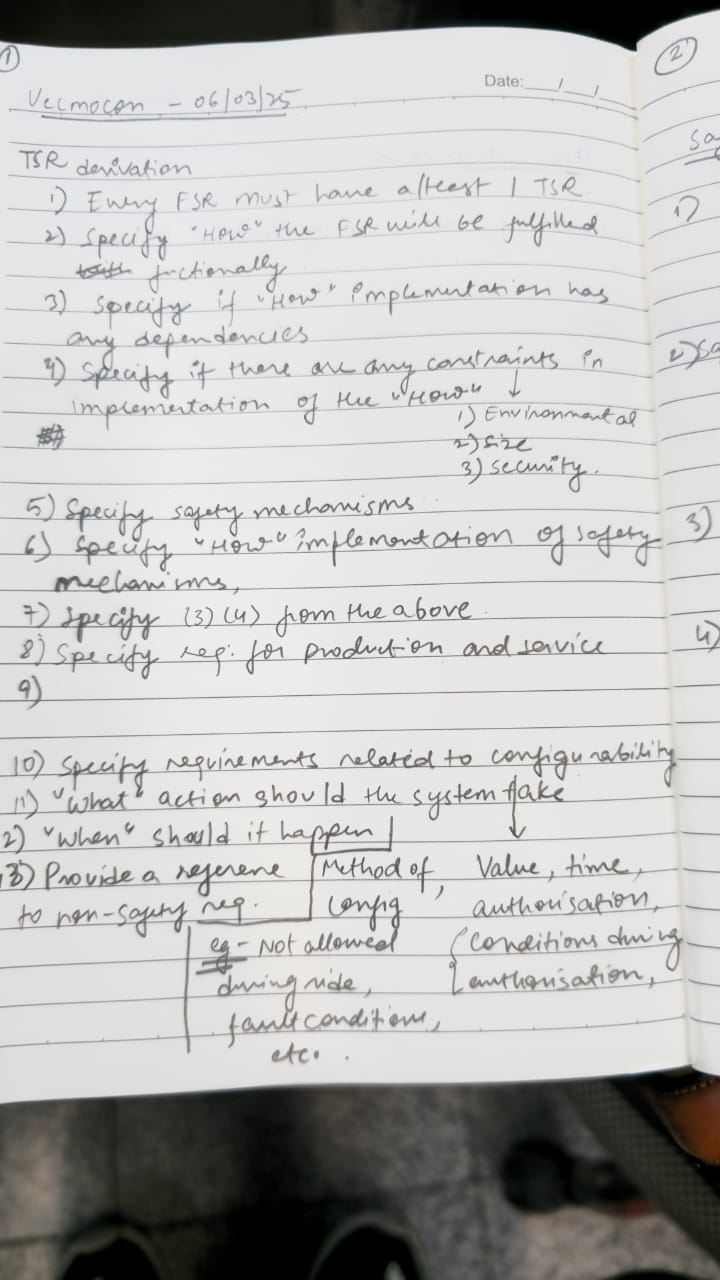 1
Date: __/__/__
Vecmocon - 06/03/25
TSR derivation
1) Every FSR must have atleast 1 TSR
2) Specify "How" the FSR will be fulfilled
fuctionally
3) Specify if "How" implementation has
any dependencies
4) Specify if there are any constraints in
implementation of the "How" ↓
1) Environmental
2) Size
3) Security.
5) Specify safety mechanisms.
6) Specify "How" implementation of safety
mechanisms,
7) Specify (3) (4) from the above.
8) Specify req. for production and service
9)
10) Specify requirements related to configurability
11) "What" action should the system take
2) "When" should it happen
13) Provide a referene
to non-safety req.
Method of,
config
Value, time,
authorisation,
conditions during
authorisation,
eg - Not allowed
during ride,
fault conditions,
etc.
2
Sa
1)
2) Sa
3)
4)